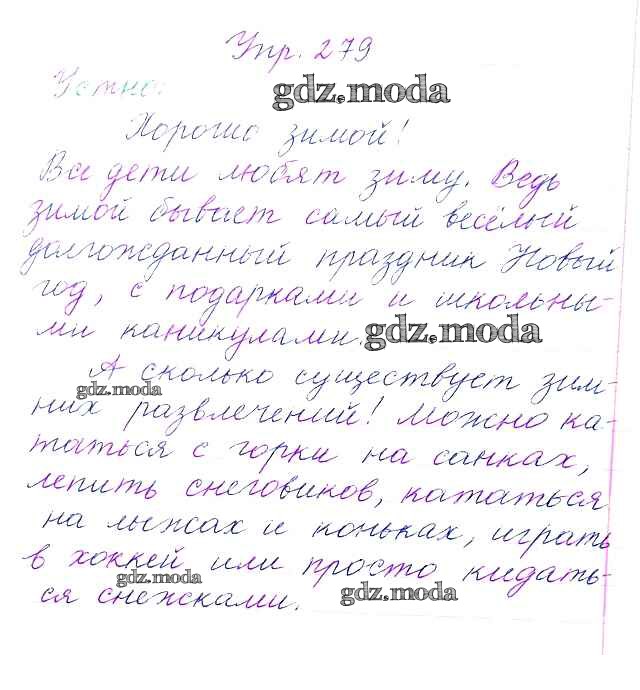 Упр. 279
Устно:
gdz.moda
Хорошо зимой!
Все дети любят зиму. Ведь
зимой бывает самый весёлый
долгожданный праздник Новый
год, с подарками и школьны-
ми каникулами.
gdz.moda
А сколько существует зим-
gdz.moda
них развлечений! Можно ка-
таться с горки на санках,
лепить снеговиков, кататься
на лыжах и коньках, играть
в хоккей или просто кидать-
gdz.moda
ся снежками.
gdz.moda